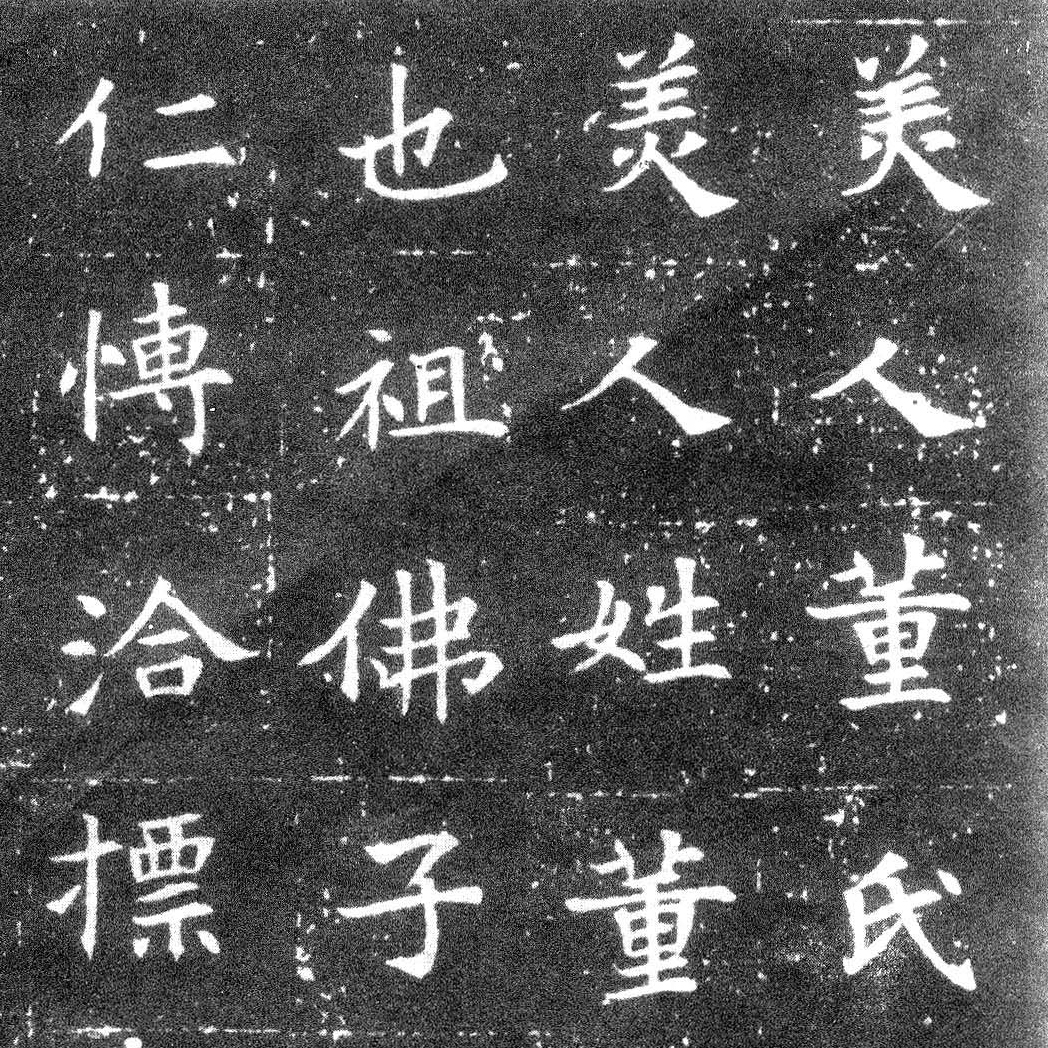 美人董氏
美人姓董
也祖佛子
仁愽洽摽